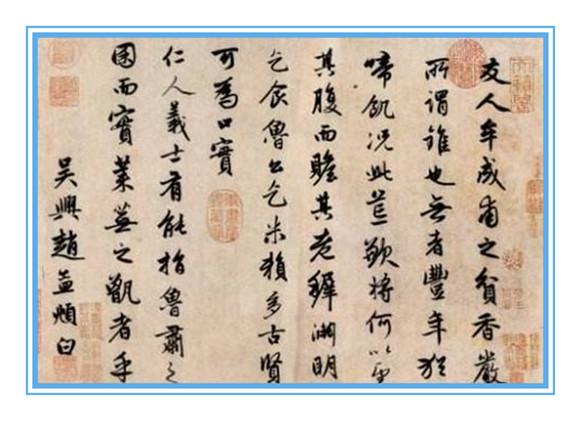 友人牟成甫之貧香嚴
所謂錐也無者豐年猶
啼飢況此荒歉將何以望
其腹而贍其老稺淵明
乞食魯公乞米賴多古賢
可爲口實
仁人義士有能指魯肅之
囷而實萊蕪之甑者乎
吳興趙孟頫白